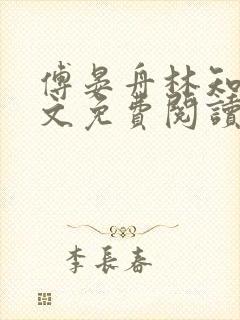 傅晏舟林知
文免費閱讀
李長春